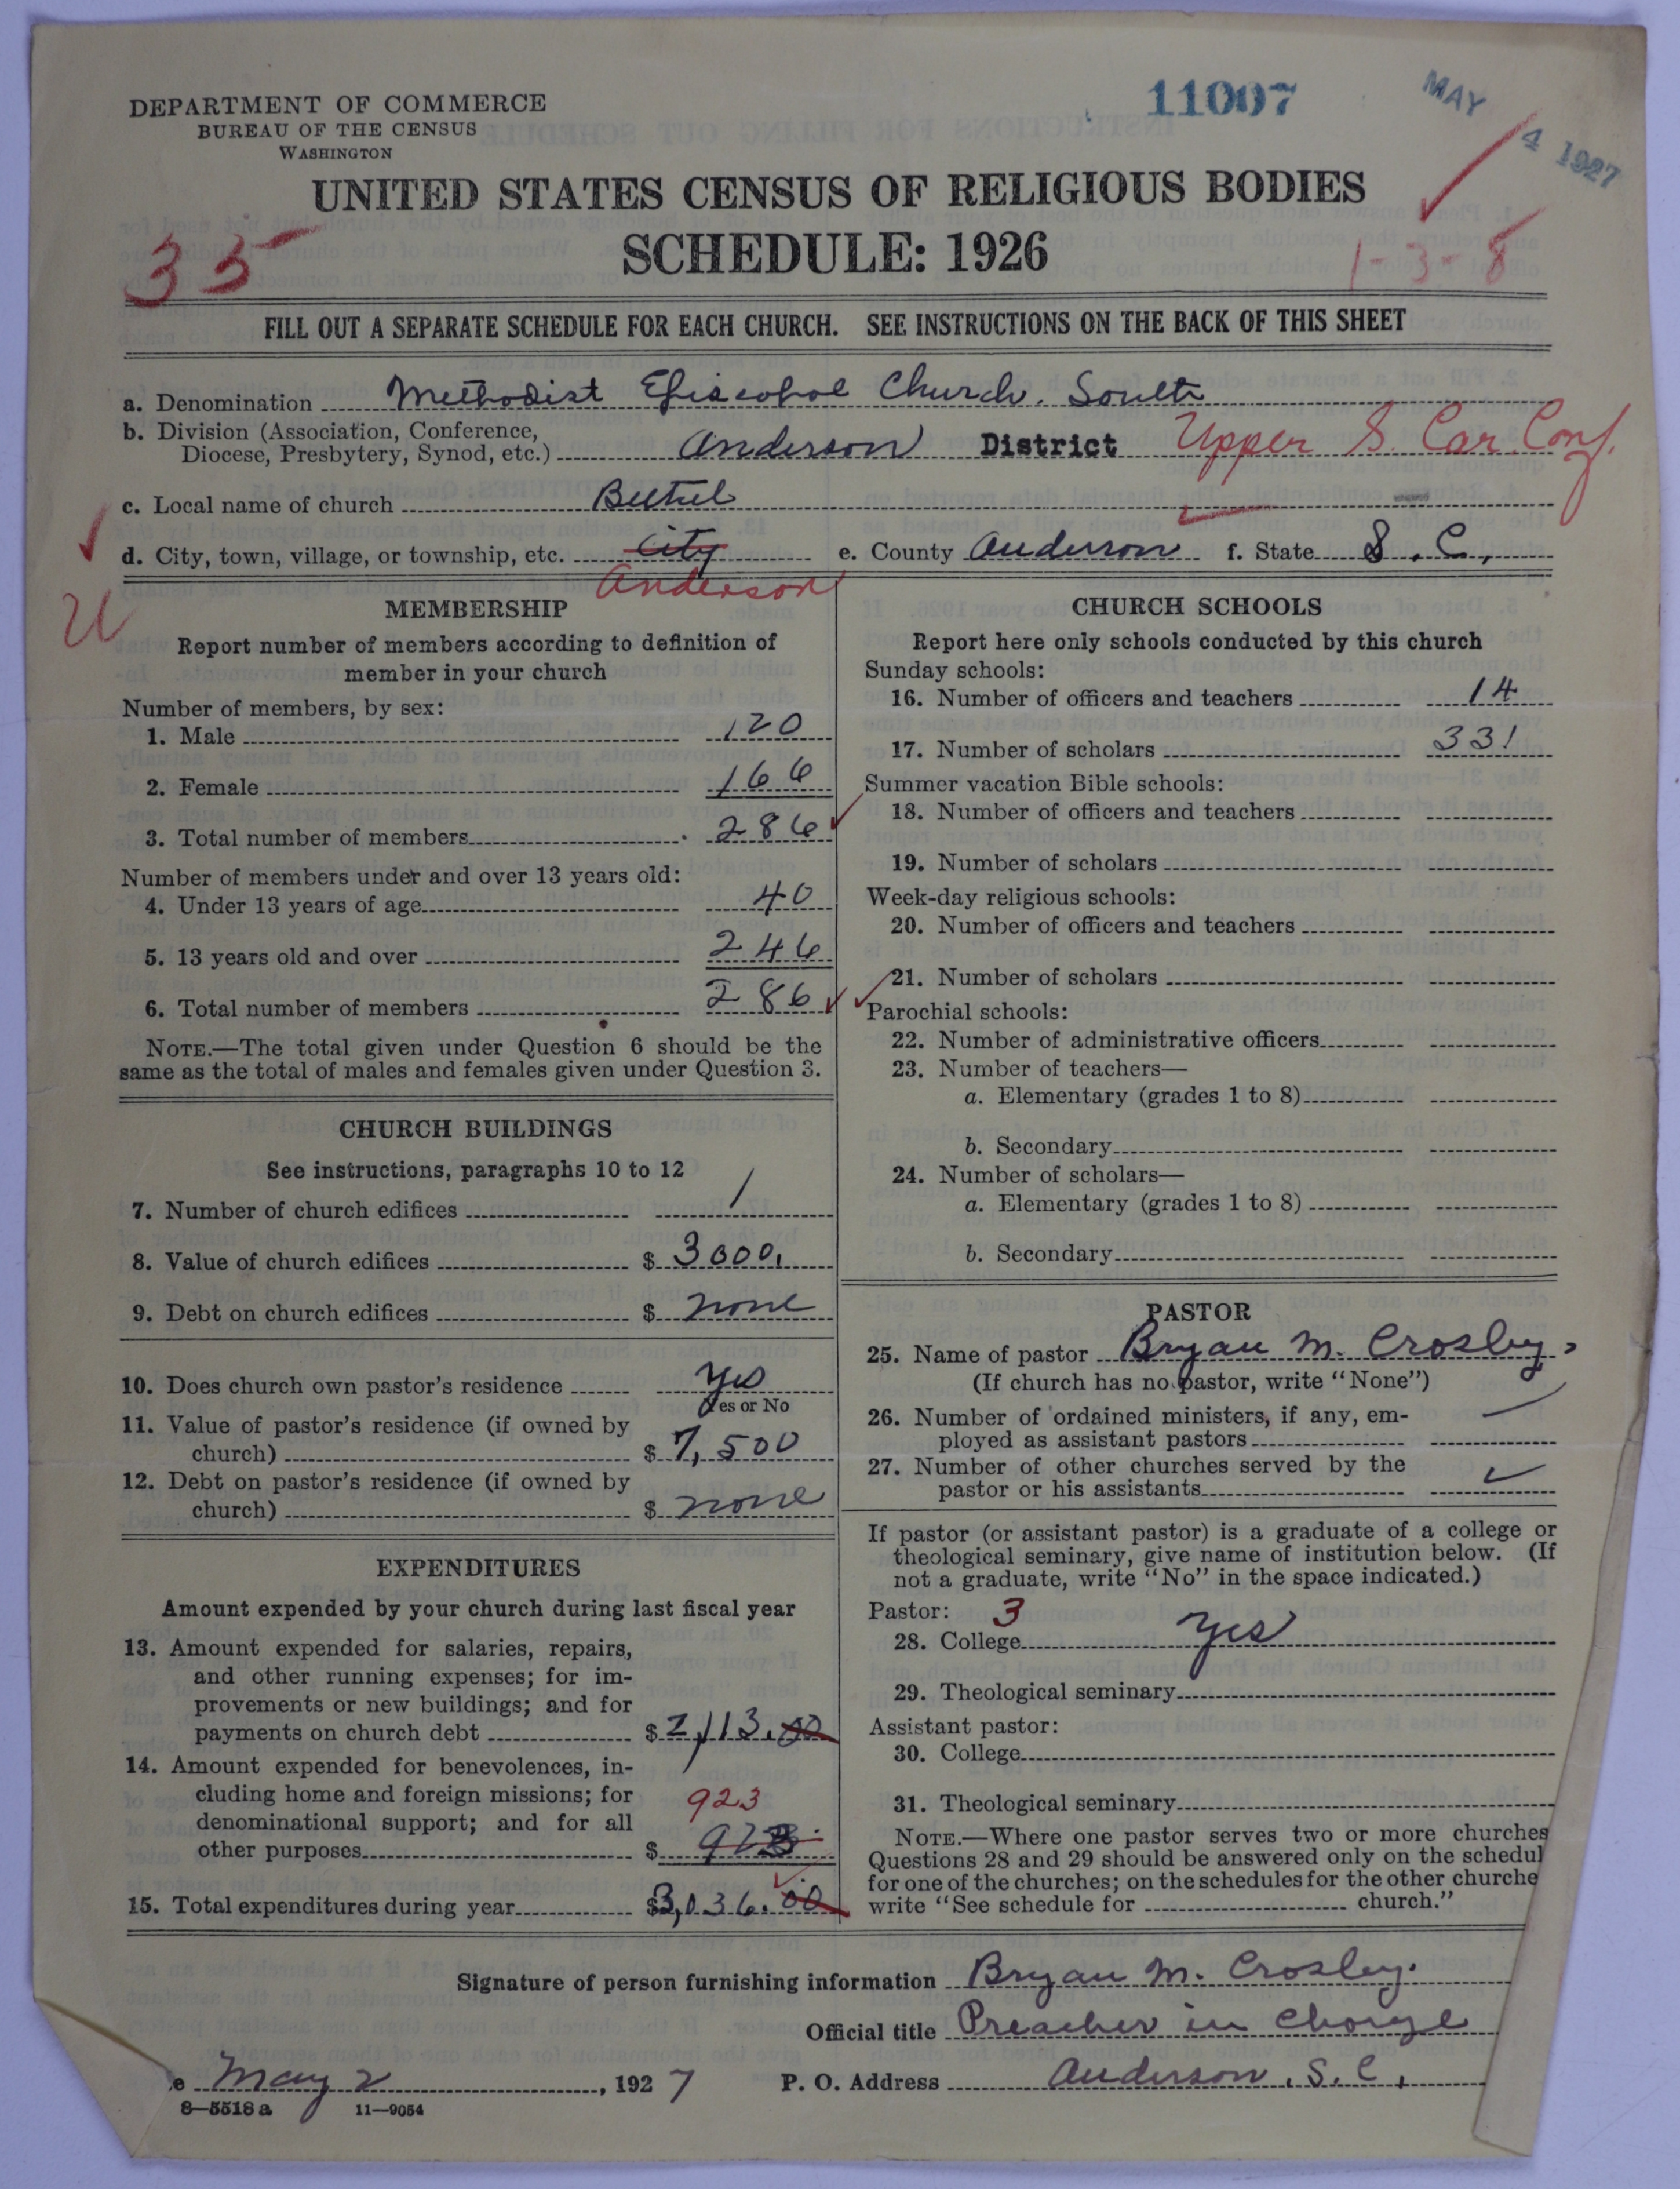 DEPARTMENT OF COMMERCE
BUREAU OF THE CENSUS
WASHINGTON
11007
MAY 4 1927
UNITED STATES CENSUS OF RELIGIOUS BODIES
SCHEDULE: 1926
35
1-3-8
FILL OUT A SEPARATE SCHEDULE FOR EACH CHURCH. SEE INSTRUCTIONS ON THE BACK OF THIS SHEET
a. Denomination Methodist Episcopal Church, South
b. Division (Association, Conference,
Diocese, Presbytery, Synod, etc.) Anderson District Upper S. Car. Conf.
c. Local name of church Bethel
d. City, town, village, or township, etc. City e. County Anderson f. State S. C.,
Anderson
MEMBERSHIP
Report number of members according to definition of
member in your church
Number of members, by sex:
1. Male 120
2. Female 166
3. Total number of members 286
Number of members under and over 13 years old:
4. Under 13 years of age 40
5. 13 years old and over 246
6. Total number of members 286
NOTE.—The total given under Question 6 should be the
same as the total of males and females given under Question 3.
CHURCH BUILDINGS
See instructions, paragraphs 10 to 12
7. Number of church edifices 1
8. Value of church edifices $ 3000.
9. Debt on church edifices $ none
10. Does church own pastor's residence yes
Yes or No
11. Value of pastor's residence (if owned by
church) $ 7,500
12. Debt on pastor's residence (if owned by
church) $ none
EXPENDITURES
Amount expended by your church during last fiscal year
13. Amount expended for salaries, repairs,
and other running expenses; for im-
provements or new buildings; and for
payments on church debt $ 2,113.00
14. Amount expended for benevolences, in-
cluding home and foreign missions; for
denominational support; and for all
923
other purposes $ 923
15. Total expenditures during year $3,036.00
CHURCH SCHOOLS
Report here only schools conducted by this church
Sunday schools:
16. Number of officers and teachers 14
17. Number of scholars 331
Summer vacation Bible schools:
18. Number of officers and teachers
19. Number of scholars
Week-day religious schools:
20. Number of officers and teachers
21. Number of scholars
Parochial schools:
22. Number of administrative officers
23. Number of teachers—
a. Elementary (grades 1 to 8)
b. Secondary
24. Number of scholars—
a. Elementary (grades 1 to 8)
b. Secondary
PASTOR
25. Name of pastor Bryan M. Crosley,
(If church has no pastor, write "None")
26. Number of ordained ministers, if any, em-
ployed as assistant pastors
27. Number of other churches served by the
pastor or his assistants
If pastor (or assistant pastor) is a graduate of a college or
theological seminary, give name of institution below. (If
not a graduate, write "No" in the space indicated.)
Pastor: 3
28. College yes
29. Theological seminary
Assistant pastor:
30. College
31. Theological seminary
NOTE.—Where one pastor serves two or more churches
Questions 28 and 29 should be answered only on the schedul
for one of the churches; on the schedules for the other churche
write "See schedule for church."
Signature of person furnishing information Bryan M. Crosley.
Official title Preacher in Charge
e May 2, 1927 P. O. Address Anderson, S. C.,
8—5518 a 11—9054